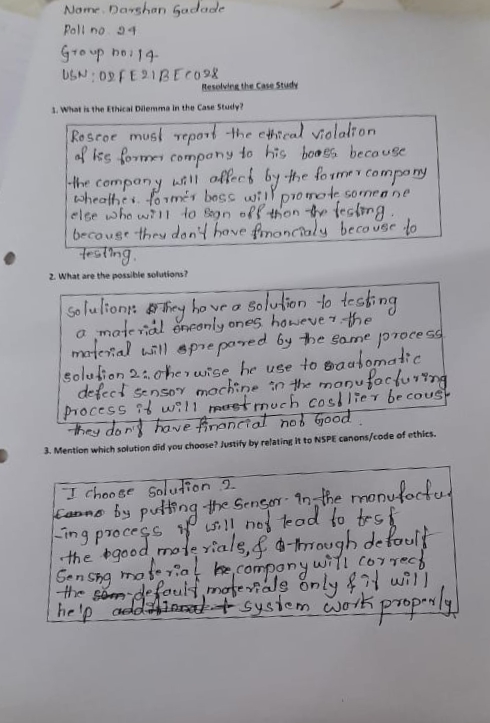 Name: Darshan Gadade
Roll no. 29
Group no: 14
USN: 02FE21BEC028
Resolving the Case Study
1. What is the Ethical Dilemma in the Case Study?
Roscoe must report the ethical violation
of his former company to his booss because
the company will affect by the former company
wheather former boss will promote someone
else who will to sign off then the testing.
because they don't have financialy because to
testing.
2. What are the possible solutions?
solution1: They have a solution to testing
a material only ones however the
material will prepared by the same process
solution 2: otherwise he use to automatic
defect sensor machine in the manufacturing
process it will much costlier because
they don't have financial not Good.
3. Mention which solution did you choose? Justify by relating it to NSPE canons/code of ethics.
I choose solution 2
by putting the sensor in the manufactu
-ing process it will not lead to test
the good materials, & through default
Sensng material company will correct
the default materials only & it will
help system work properly